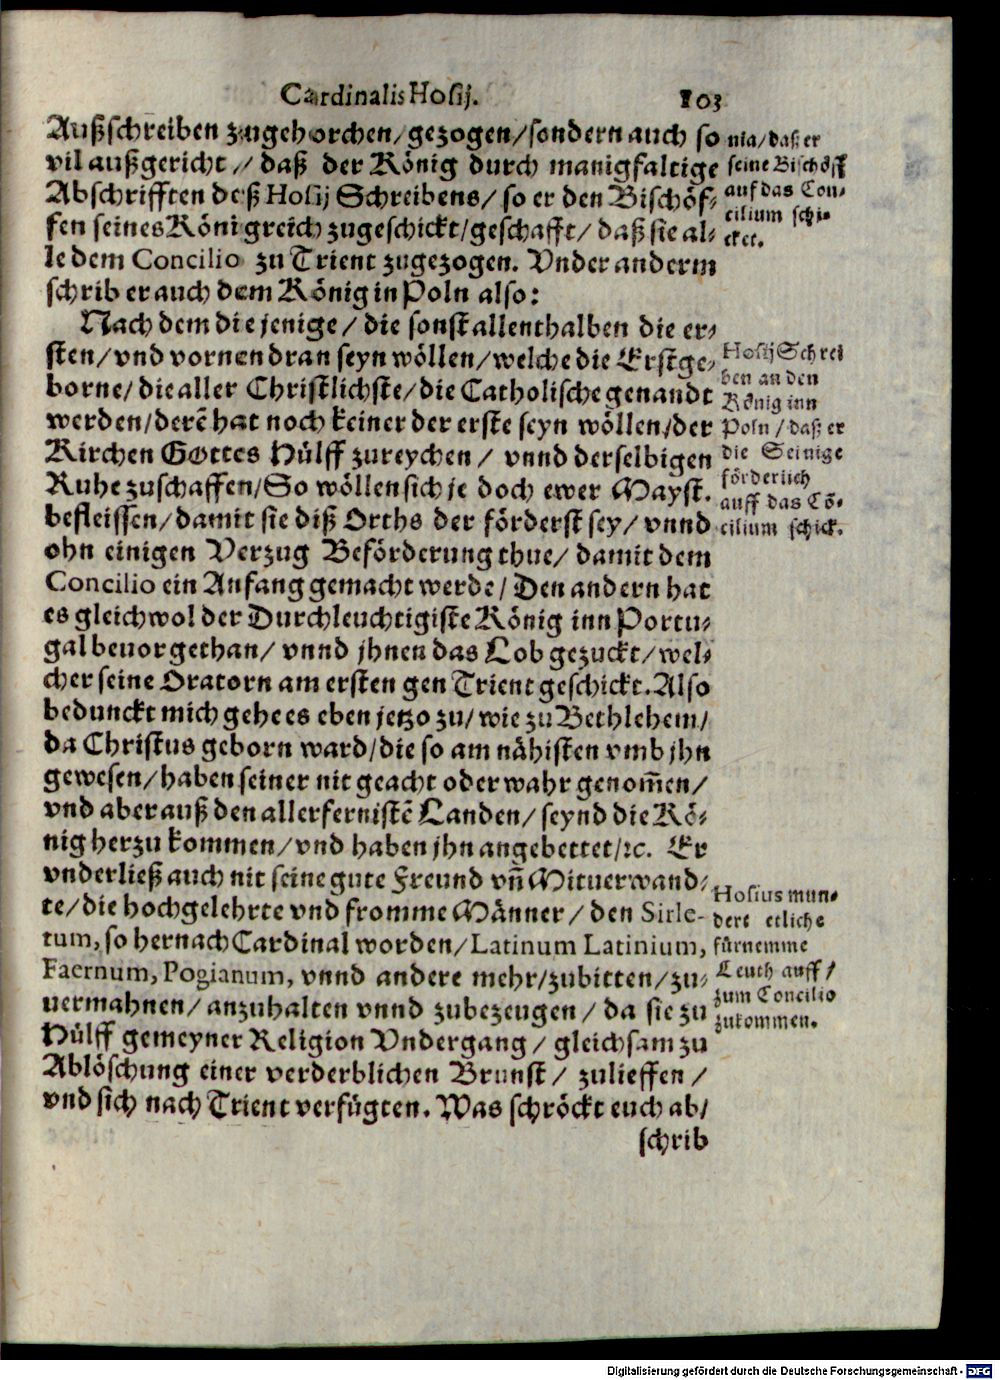 Cardinalis Hosij. 103
Außschreiben zugehorchen/gezogen/sondern auch so
vil außgericht // daß der König durch manigfaltige
Abschrifften deß Hosij Schreibens/ so er den Bischöf-
fen seines Königreich zugeschickt/geschafft/ daß sie al-
le dem Concilio zu Trient zugezogen. Vnder anderm
schrib er auch dem König in Poln also:
Nach dem die jenige / die sonst allenthalben die er-
sten/vnd vornen dran seyn wöllen/welche die Erstge-
borne/die aller Christlichste/die Catholische genandt
werden/derẽ hat noch keiner der erste seyn wöllen/der
Kirchen Gottes Hülff zureychen / vnnd derselbigen
Ruhe zuschaffen/So wöllen sich je doch ewer Mayst.
befleissen/damit sie diß Orths der förderst sey/ vnnd
ohn einigen Verzug Beförderung thue/ damit dem
Concilio ein Anfang gemacht werde/ Den andern hat
es gleichwol der Durchleuchtigiste König inn Portu-
gal beuor gethan/ vnnd jhnen das Lob gezuckt/wel-
cher seine Oratorn am ersten gen Trient geschickt. Also
bedunckt mich gehe es eben jetzo zu/ wie zu Bethlehem/
da Christus geborn ward/die so am nähisten vmb jhn
gewesen/haben seiner nit geacht oder wahr genom̃en/
vnd aber auß den allerfernistẽ Landen/ seynd die Kö-
nig herzu kommen/vnd haben jhn angebettet/ꝛc. Er
vnderließ auch nit seine gute Freund vñ Mituerwand-
te/die hochgelehrte vnd fromme Männer/ den Sirle-
tum, so hernach Cardinal worden/Latinum Latinium,
Faernum, Pogianum, vnnd andere mehr/zubitten/zu-
uermahnen/ anzuhalten vnnd zubezeugen / da sie zu
Hülff gemeyner Religion Vndergang / gleichsam zu
Ablöschung einer verderblichen Brunst / zulieffen /
vnd sich nach Trient verfügten. Was schröckt euch ab/
schrib
nia/daß er
seine Bischöff
auf das Con-
cilium schi-
cket.
Hosij Schrei
ben an den
König inn
Poln / daß er
die Seinige
förderlich
auff das Cõ-
cilium schick.
Hosius mun-
dert etliche
fürnemme
Leuth auff /
zum Concilio
zukommen.
Digitalisierung gefördert durch die Deutsche Forschungsgemeinschaft - DFG